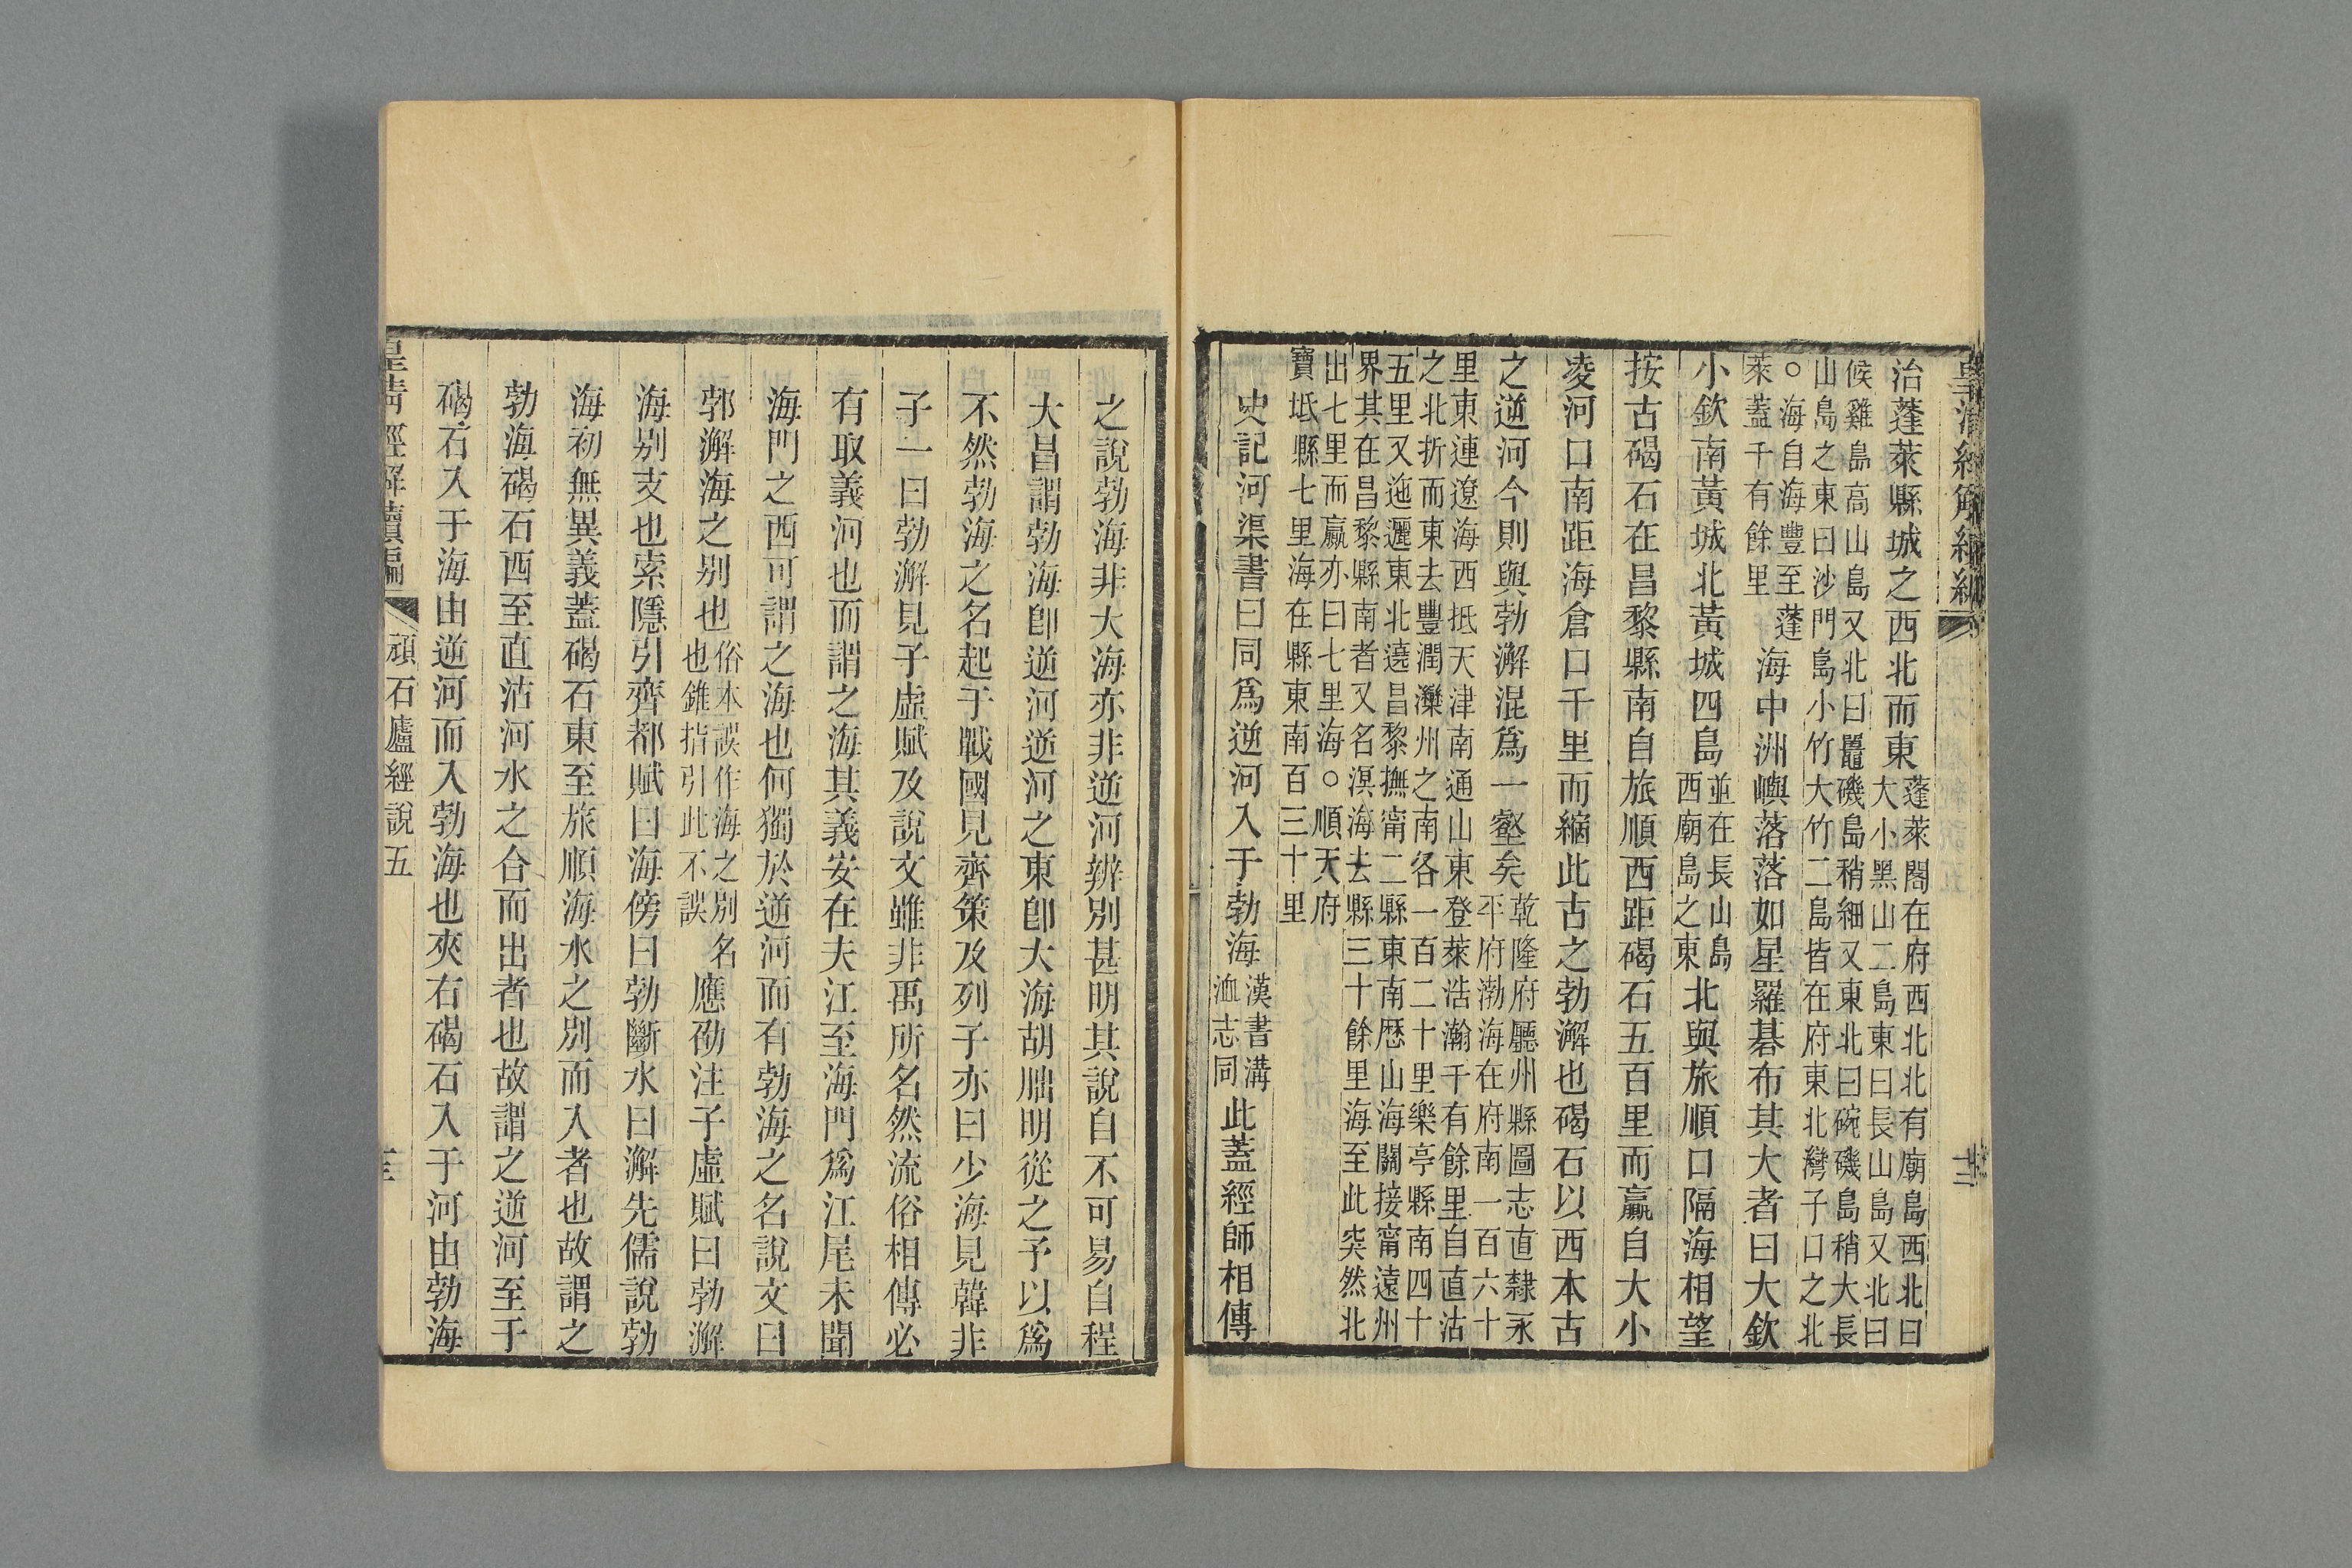 治蓬萊縣城之西北而東蓬萊閣在府西北北有廟島西北曰
大小黑山二島東曰長山島又北曰
候雞島高山島又北曰鼉磯島稍細又東北曰碗磯島稍大長
山島之東曰沙門島小竹大竹二島皆在府東北灣子口之北
○海自海豐至蓬
萊蓋千有餘里
海中洲嶼落落如星羅碁布其大者曰大欽
小欽南黃城北黃城四島並在長山島
西廟島之東北與旅順口隔海相望
按古碣石在昌黎縣南自旅順西距碣石五百里而贏自大小
凌河口南距海倉口千里而縮此古之勃澥也碣石以西本古
之逆河今則與勃澥混爲一壑矣乾隆府廳州縣圖志直隸永
平府渤海在府南一百六十
里東連遼海西抵天津南通山東登萊浩瀚千有餘里自直沽
之北折而東去豐潤灤州之南各一百二十里樂亭縣南四十
五里又迤邐東北遶昌黎撫甯二縣東南歷山海關接甯遠州
界其在昌黎縣南者又名溟海去縣三十餘里海至此突然北
出七里而贏亦曰七里海○順天府
寶坻縣七里海在縣東南百三十里
史記河渠書曰同爲逆河入于勃海漢書溝
洫志同此蓋經師相傳
之說勃海非大海亦非逆河辨別甚明其說自不可易自程
大昌謂勃海卽逆河逆河之東卽大海胡朏明從之予以爲
不然勃海之名起于戰國見齊策及列子亦曰少海見韓非
子一曰勃澥見子虛賦及說文雖非禹所名然流俗相傳必
有取義河也而謂之海其義安在夫江至海門爲江尾未聞
海門之西可謂之海也何獨於逆河而有勃海之名說文曰
郭澥海之別也俗本誤作海之別名
也錐指引此不誤應劭注子虛賦曰勃澥
海別支也索隱引齊都賦曰海傍曰勃斷水曰澥先儒說勃
海初無異義蓋碣石東至旅順海水之別而入者也故謂之
勃海碣石西至直沽河水之合而出者也故謂之逆河至于
碣石入于海由逆河而入勃海也夾右碣石入于河由勃海
皇清經解續編 頑石廬經說五